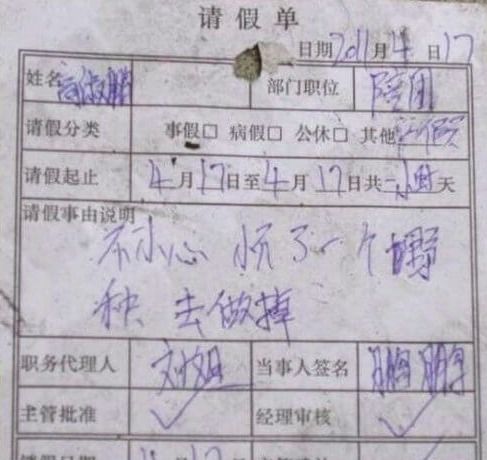 请假单
日期 2011 月 4 日 17
姓名 部门职位 陪团
请假分类 事假□ 病假□ 公休□ 其他
请假起止 4月17日至4月17日共一小时天
请假事由说明
不小心 怀了一个野
种 去做掉
职务代理人 当事人签名
主管批准 ✓ 经理审核 ✓
请假日期